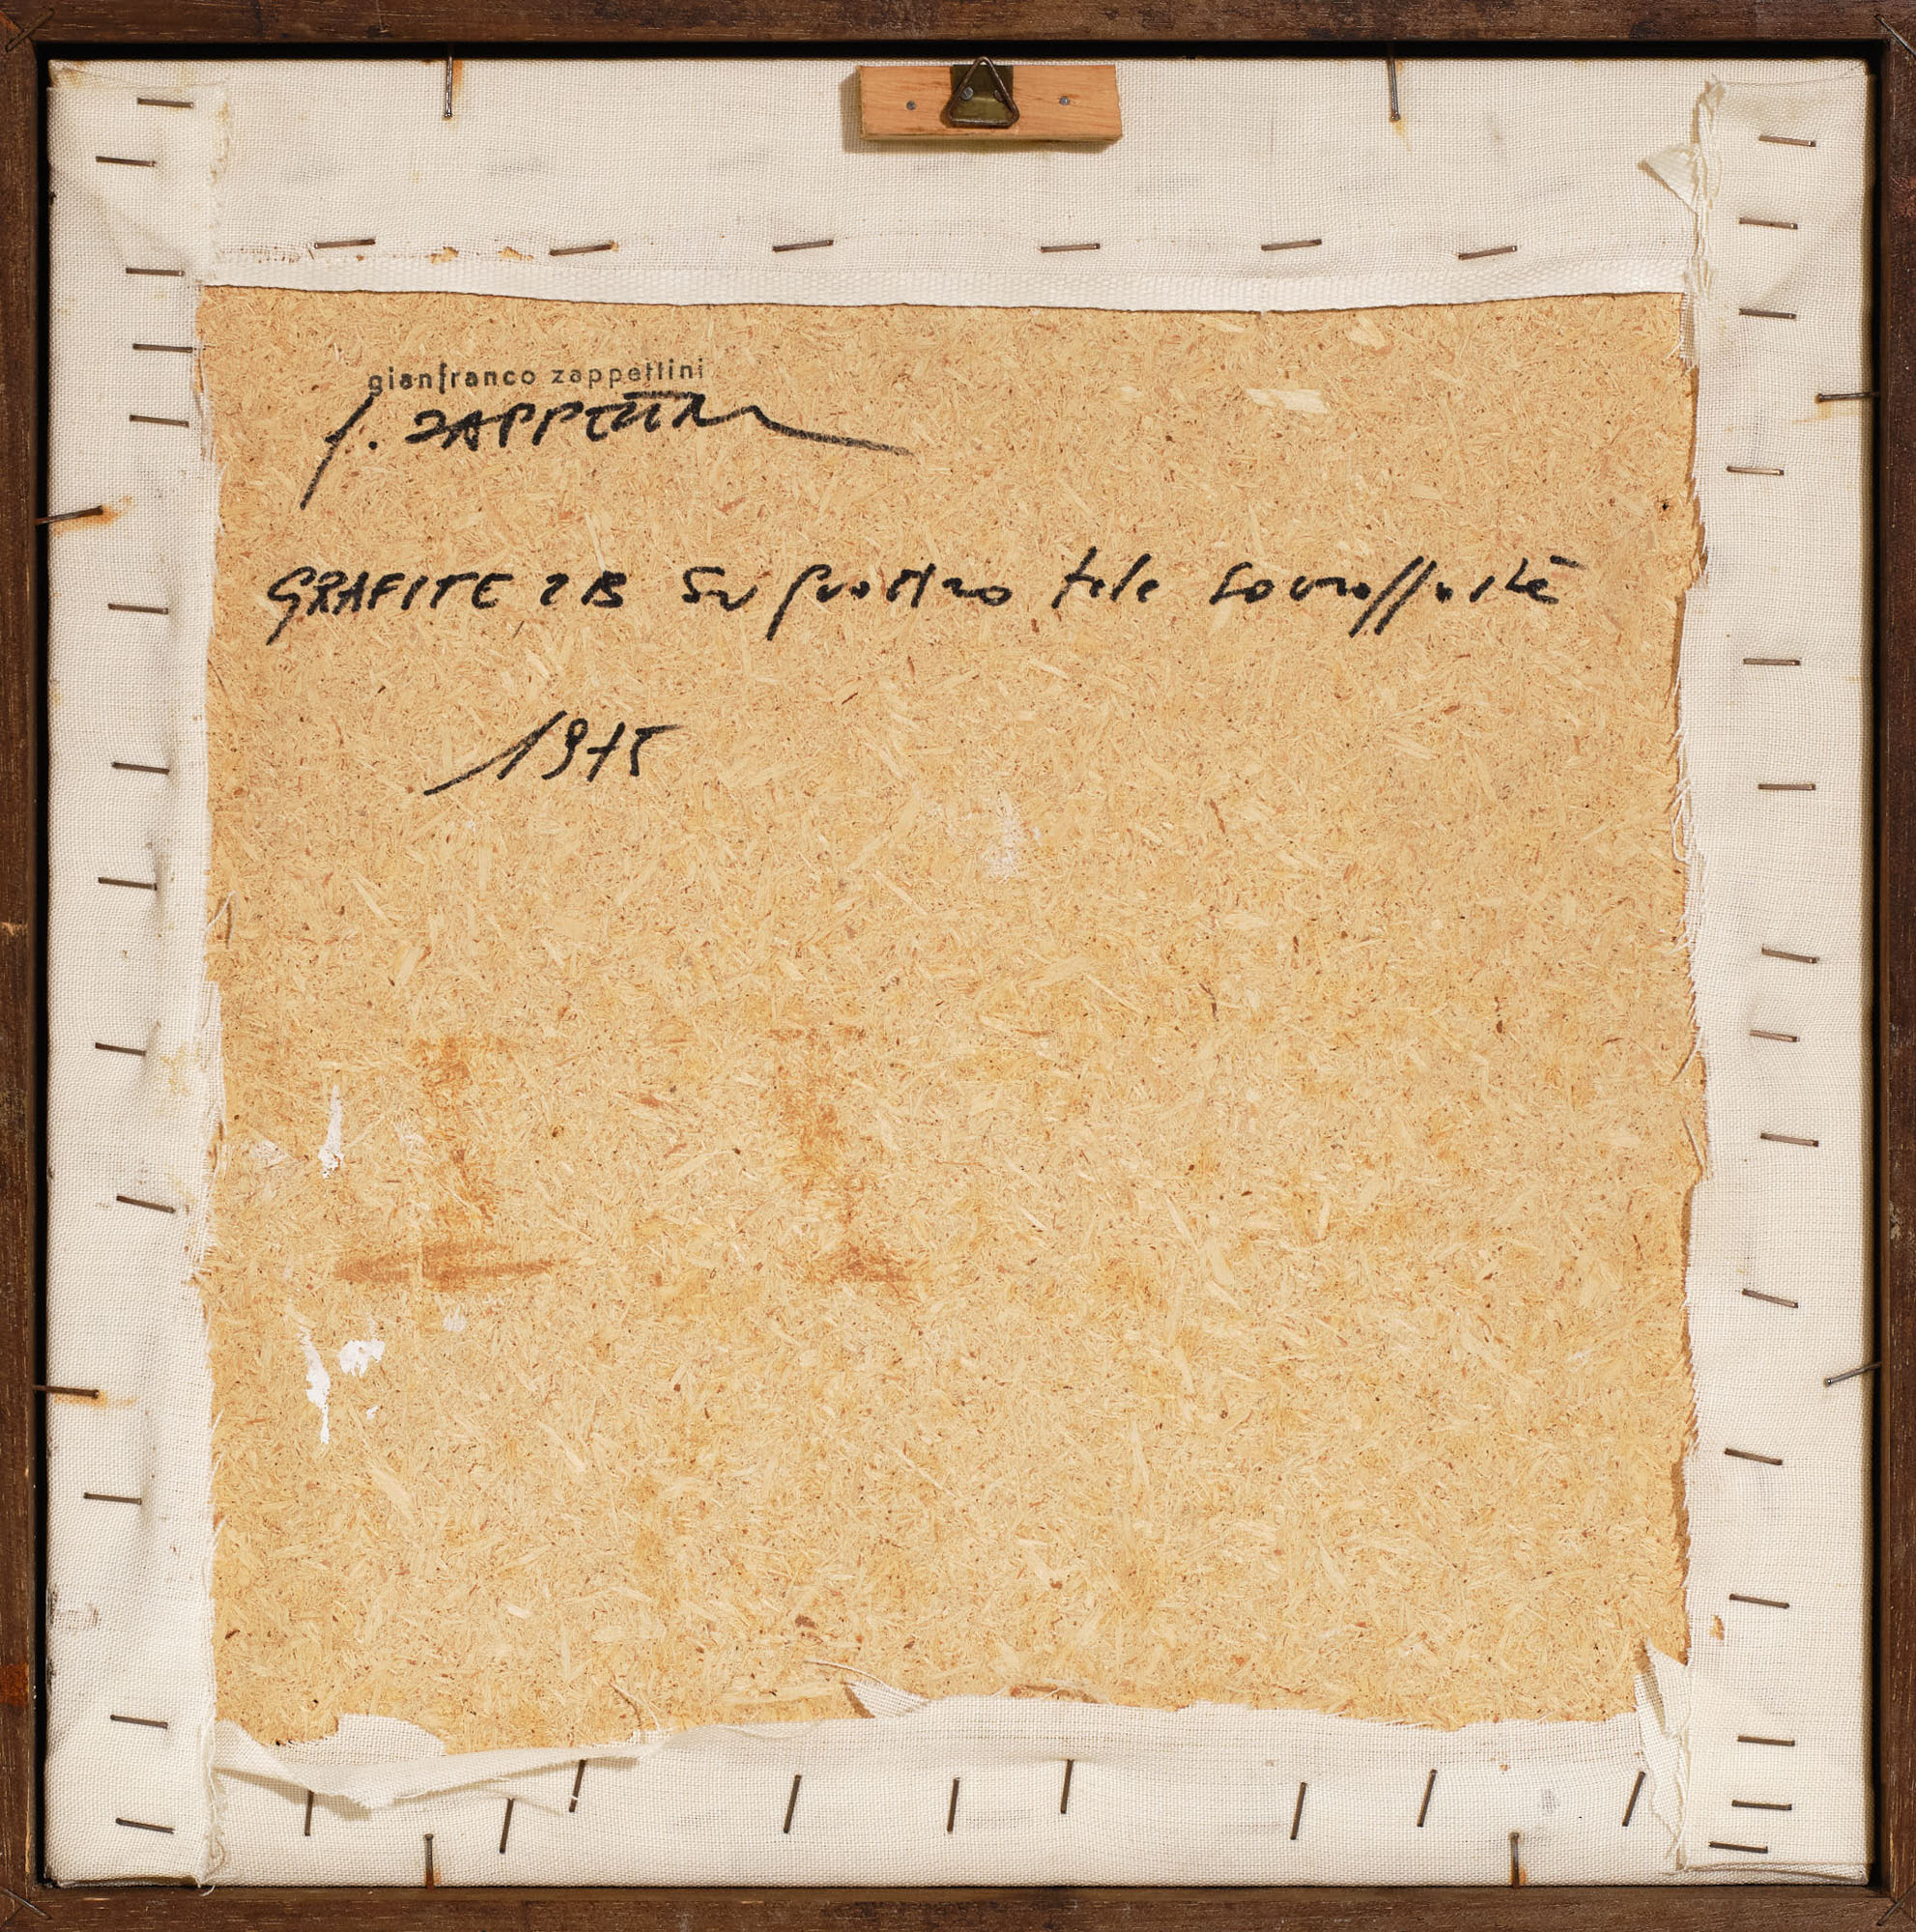 gianfranco zappettini
g. ZAPPETTINI
GRAFITE 2B su quattro tele sovrapposte
1975